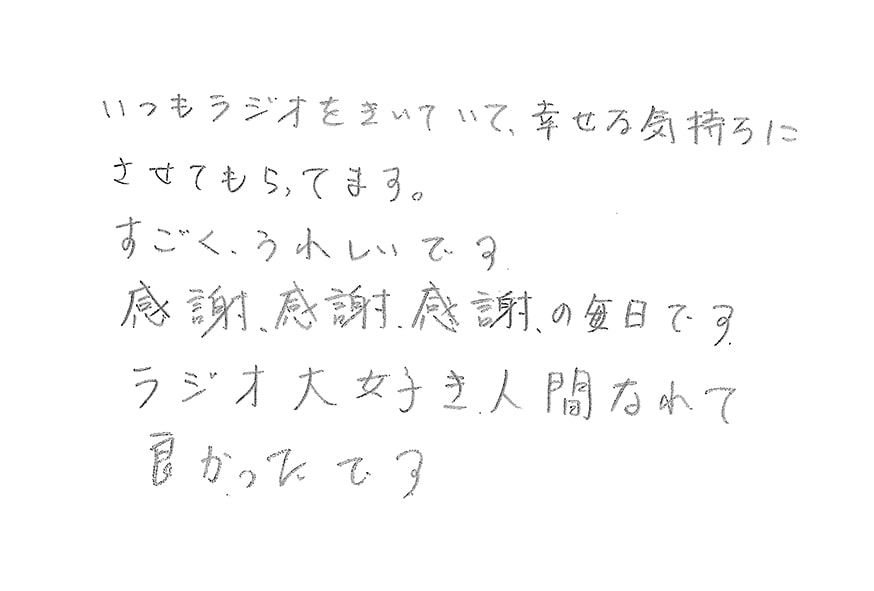 いつもラジオをきいていて、幸せな気持ちに
させてもらってます。
すごく、うれしいです
感謝、感謝、感謝、の毎日です
ラジオ大好き人間なれて
良かったです